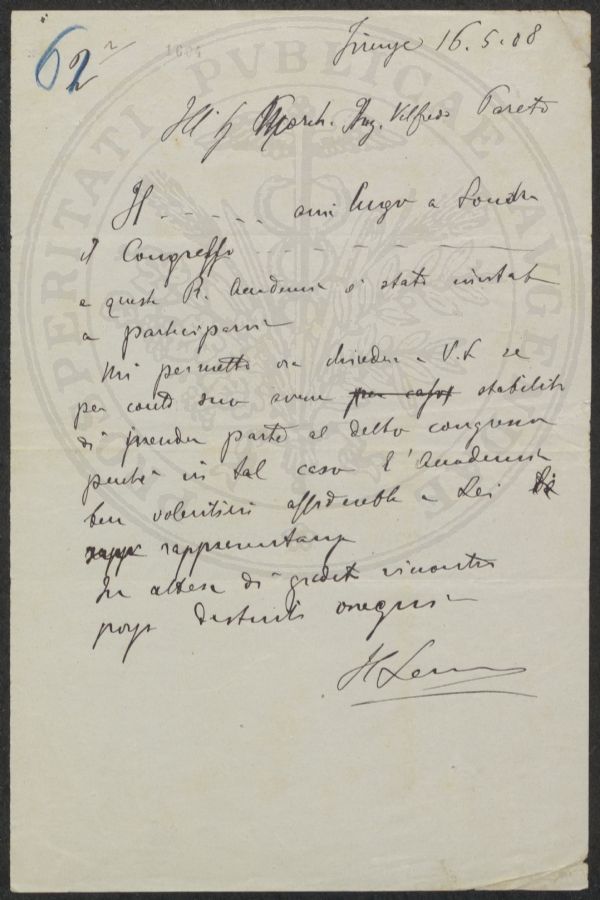 62
1604
Firenze 16.5.08
Ill March. Ing. Vilfredo Pareto
Il - - - - - - avrà luogo a Londra
il Congresso - - - - - - - - -
e questa R. Accademia è stata invitata
a parteciparvi
Mi permetto ora chiedere a V.S. se
per conto suo avesse per caso stabilito
di prender parte al detto congresso
perchè in tal caso l'Accademia
ben volentieri affiderebbe a Lei la
rapp rappresentanza
In attesa di gradito riscontro
porgo distinti ossequi
Il
PROSPERITATI PVBLICAE AVGENDAE